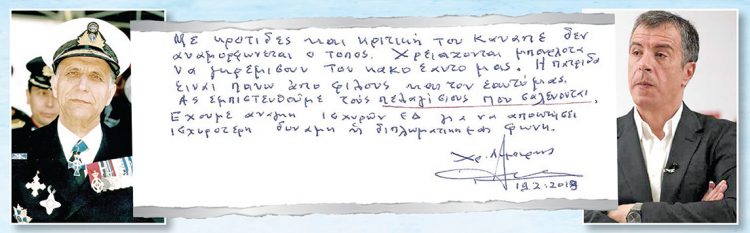 Με κροτίδες και κριτική του καναπέ δεν
αναμορφώνεται ο τόπος. Χρειάζονται μπουρλότα
να γκρεμίσουν τον κακό εαυτό μας. Η Πατρίδα
είναι πάνω από φίλους και τον εαυτό μας.
Ας εμπιστευθούμε τους πελαγίσιους που σαλεύονται.
Έχουμε ανάγκη ισχυρών ΕΔ για να αποκτήσει
ισχυρότερη δύναμη η διπλωματική μας φωνή.
Χρ. Λυμπέρης
19.2.2018